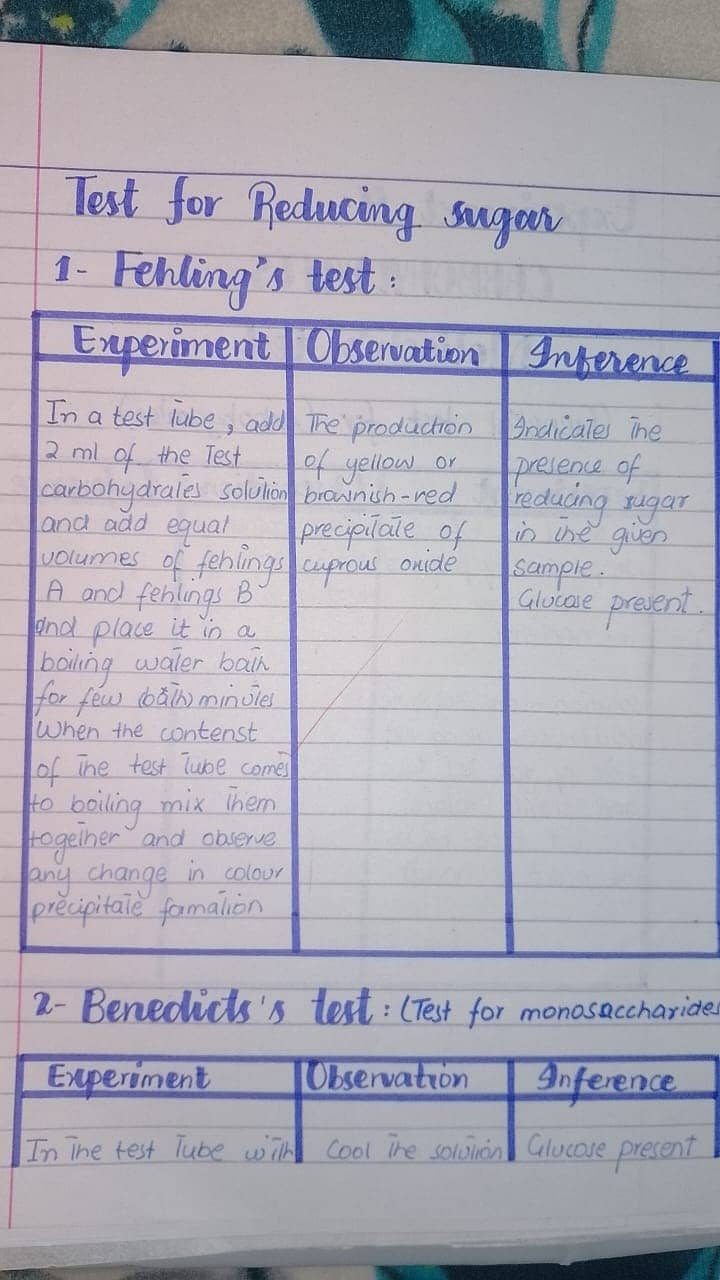 Test for Reducing sugar
1- Fehling's test :
Experiment
In a test tube, add
2 ml of the Test
carbohydrates solution
and add equal
volumes of fehlings
A and fehlings B
and place it in a
boiling water bath
for few (bath) minutes
When the contenst
of the test tube comes
to boiling mix them
together and observe
any change in colour
precipitate formation
Observation
The production
of yellow or
brownish-red
precipitate of
cuprous oxide
Inference
Indicates the
presence of
reducing sugar
in the given
sample.
Glucose present.
2- Benedicts's test : (Test for monosaccharides
Experiment
In the test tube with
Observation
Cool the solution
Inference
Glucose present